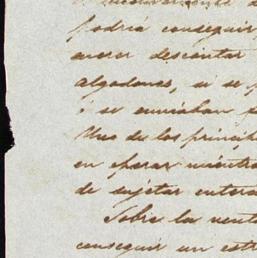 podria conseguir
descontar
algodones, si se p
i se enviaban p
Uno de los princip
en operar miéntra
de sujetar entera
Sobre la vent
conseguir un estr